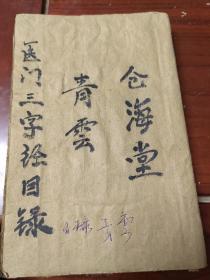 仓海堂
青雲
医门三字经目录